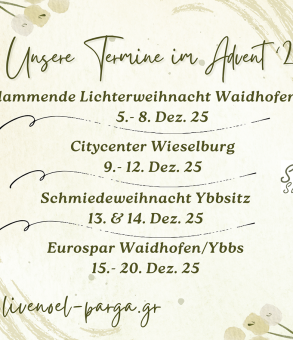 Unsere Termine im Advent '2
lammende Lichterweihnacht Waidhofen
5.- 8. Dez. 25
Citycenter Wieselburg
9.- 12. Dez. 25
Schmiedeweihnacht Ybbsitz
13. & 14. Dez. 25
Eurospar Waidhofen/Ybbs
15.- 20. Dez. 25
livenoel-parga.gr